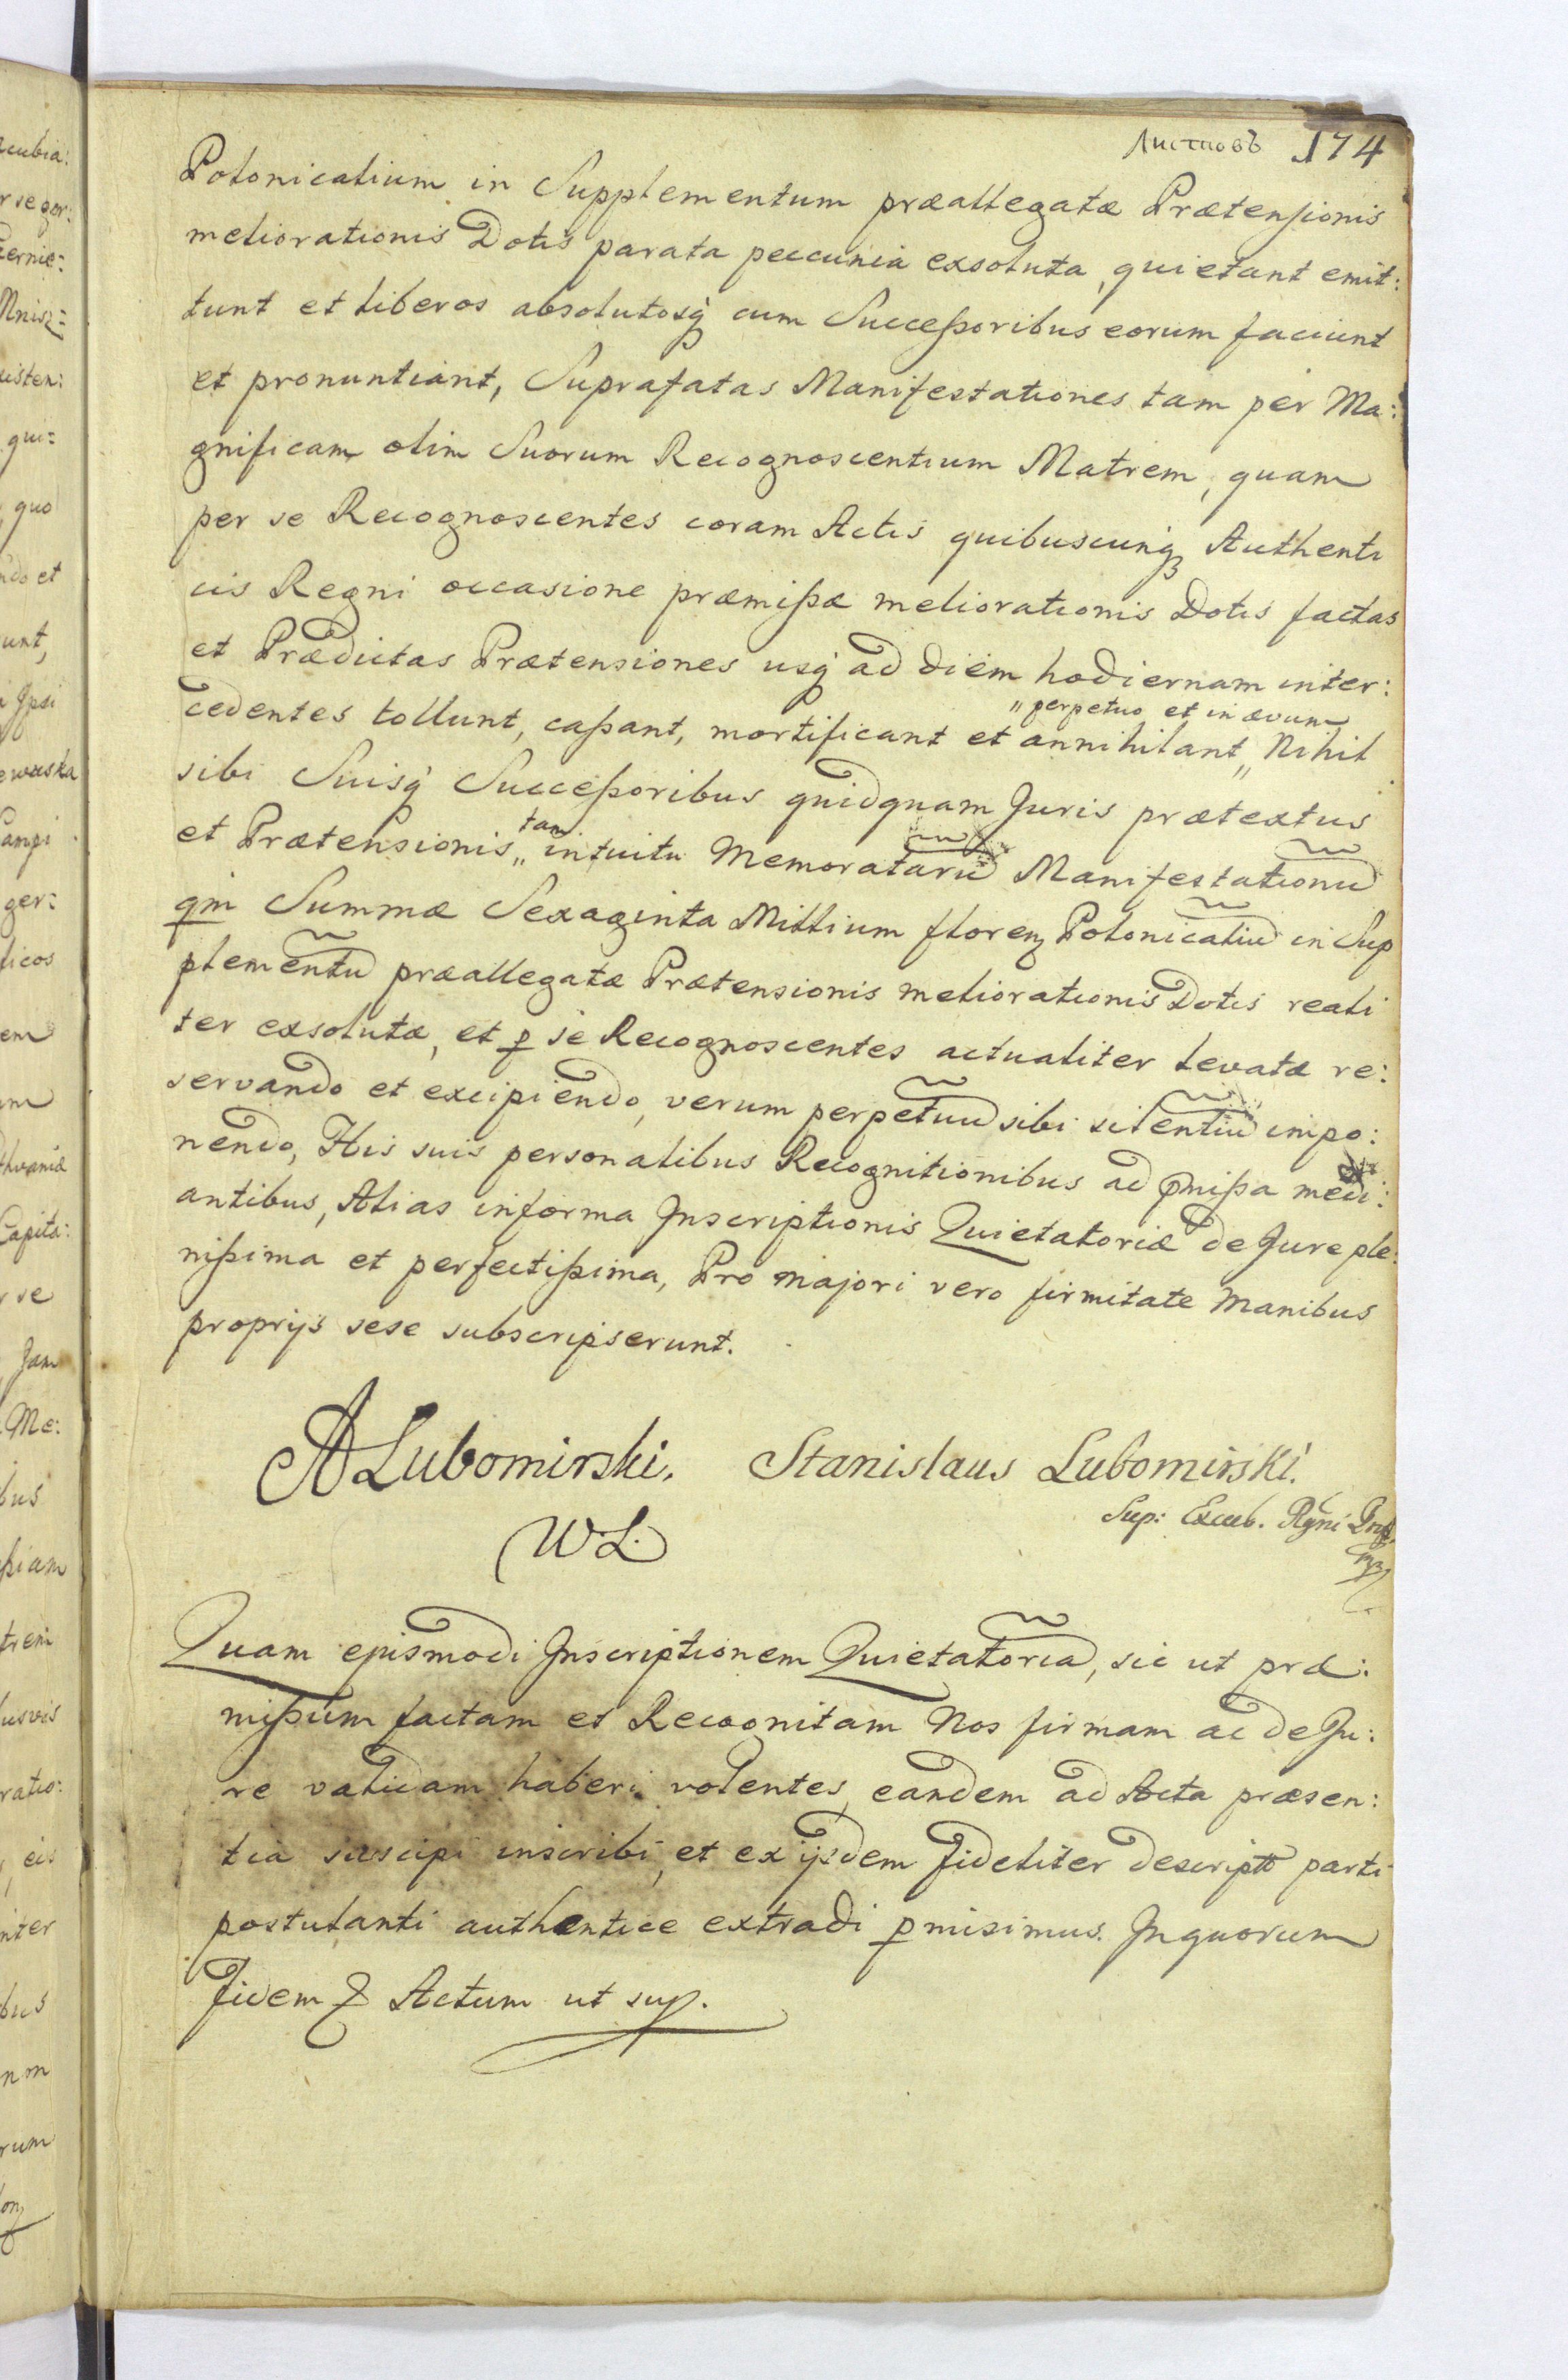 Листовъ 174
Polonicalium in Supplementum præallegatæ Prætensionis
meliorationis Dotis parata peccunia exsoluta, quietant emit:
tunt et liberos absolutosq́ cum Successoribus eorum faciunt
et pronuntiant, Suprafatas Manifestationes tam per Ma:
gnificam olim Suorum Recognoscentium Matrem, quam
per se Recognoscentes coram Actis quibuscunqꝫ Authenti
cis Regni occasione præmissæ meliorationis Dotis factas
et Prædictas Prætensiones usq́ ad diem hodiernam inter:
„perpetuo et in ævum
cedentes tollunt, cassant, mortificant et annihilant„ Nihil
sibi Suisq́ Successoribus quidquam Juris prætextus
tam
et Prætensionis„ intuitu Memoratarũ Manifestationũ
qm Summæ Sexaginta Millium florenꝫ Polonicaliũ in Sup
plementũ præallegatæ Prætensionis meliorationis Dotis reali
ter exsolutæ, et ꝑ se Recognoscentes actualiter levatæ re:
servando et excipiendo, verum perpetuũ sibi silentiũ impo:
nendo, His suis personalibus Recognitionibus ad p̄missa medi:
antibus, Alias in forma Inscriptionis Quietatoriæ de Jure ple:
nissima et perfectissima, Pro majori vero firmitate Manibus
proprijs sese subscripserunt.
A Lubomirski. Stanislaus Lubomirski.
WL. Sup: Excub. Rgni Prff.
Quam ejusmodi Inscriptionem Quietatoriã, sic ut præ:
missum factam et Recognitam Nos firmam ac de Ju:
re validam haberi volentes, eandem ad Acta præsen:
tia suscipi inscribi, et ex ijsdem fideliter descriptã parti
postulanti authentice extradi ꝑmisimus. In quorum
fidem & Actum ut sup.